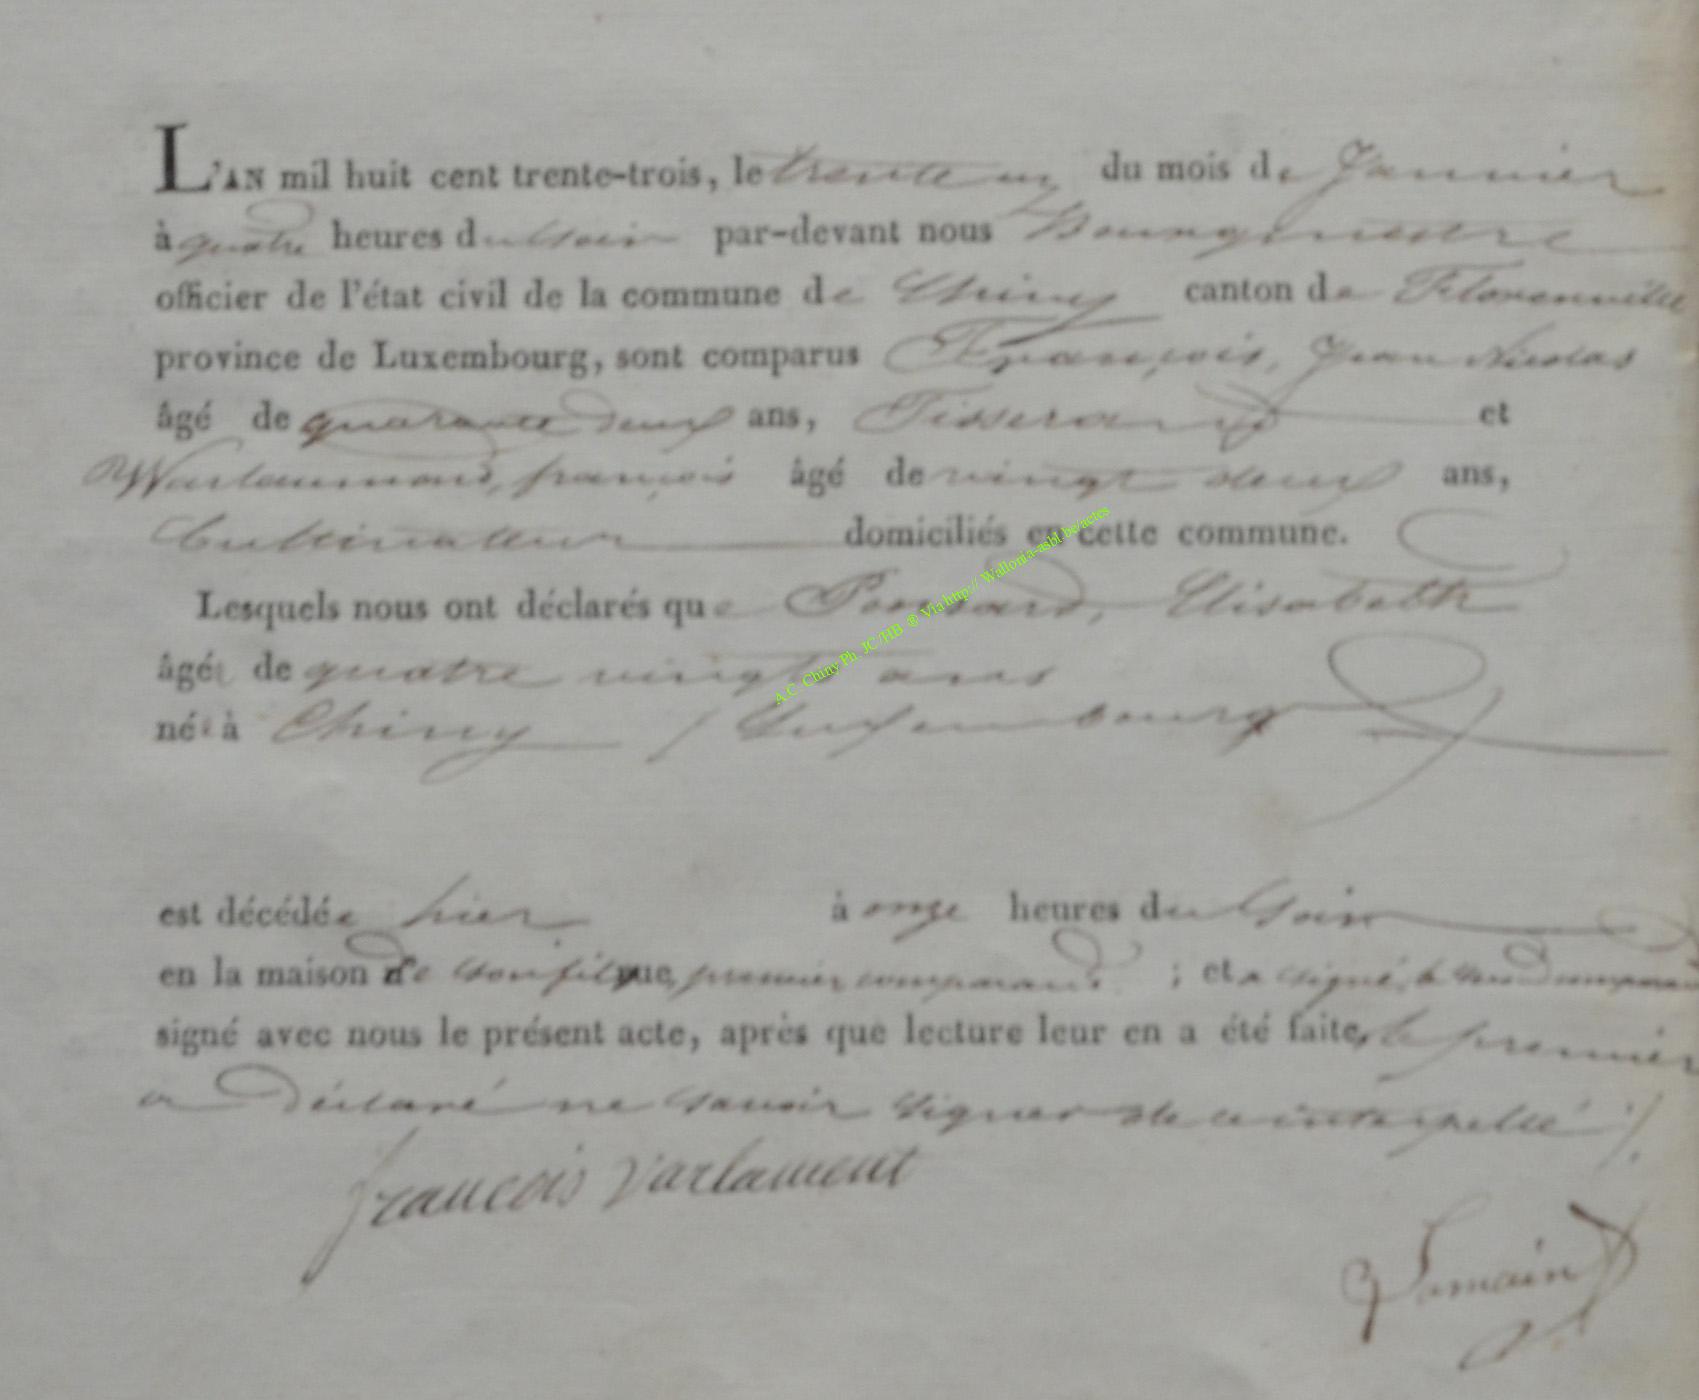 L'AN mil huit cent trente-trois, le trente un du mois de Janvier
à quatre heures du soir par-devant nous Bourgmestre
officier de l'état civil de la commune de Chiny canton de Florenville
province de Luxembourg, sont comparus François, Jean Nicolas
âgé de quarante deux ans, Tisserand et
Warlaumond, françois âgé de vingt deux ans,
Cultivateur domiciliés en cette commune.
Lesquels nous ont déclarés que Ponsard, Elisabeth
âgée de quatre vingts ans
née à Chiny / Luxembourg
est décédée hier à onze heures du soir
en la maison de son fils, premier comparand ; et a signé, le second comparand
signé avec nous le présent acte, après que lecture leur en a été faite, le premier
a déclaré ne savoir signer de ce interpellé /.
francois varlament
A.C. Chiny Ph. JC/HB ® Via http:// Wallonia-asbl.be/actes